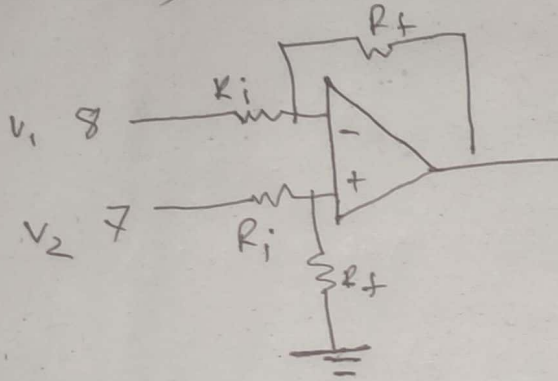 Rf
Ri
V1 8
-
+
V2 7
Ri
Rf